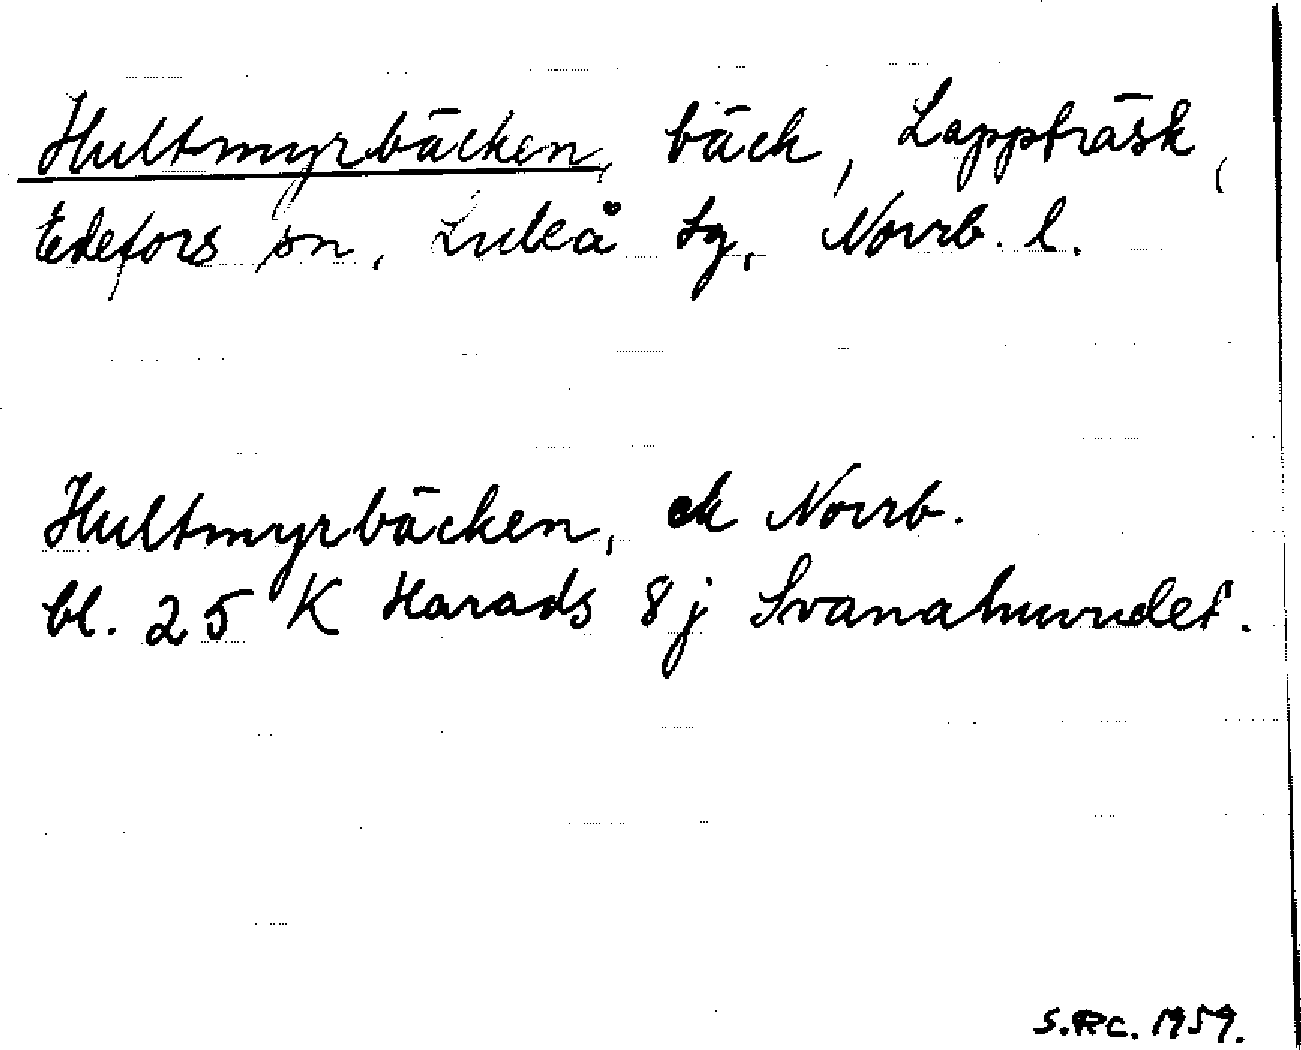 Hultmyrbäcken, bäck, Lappträsk,
Edefors sn, Luleå tg, Norrb. l.
Hultmyrbäcken, ek Norrb.
bl. 25 K Harads 8j Svanahuvudet.
S.Pc. 1959.